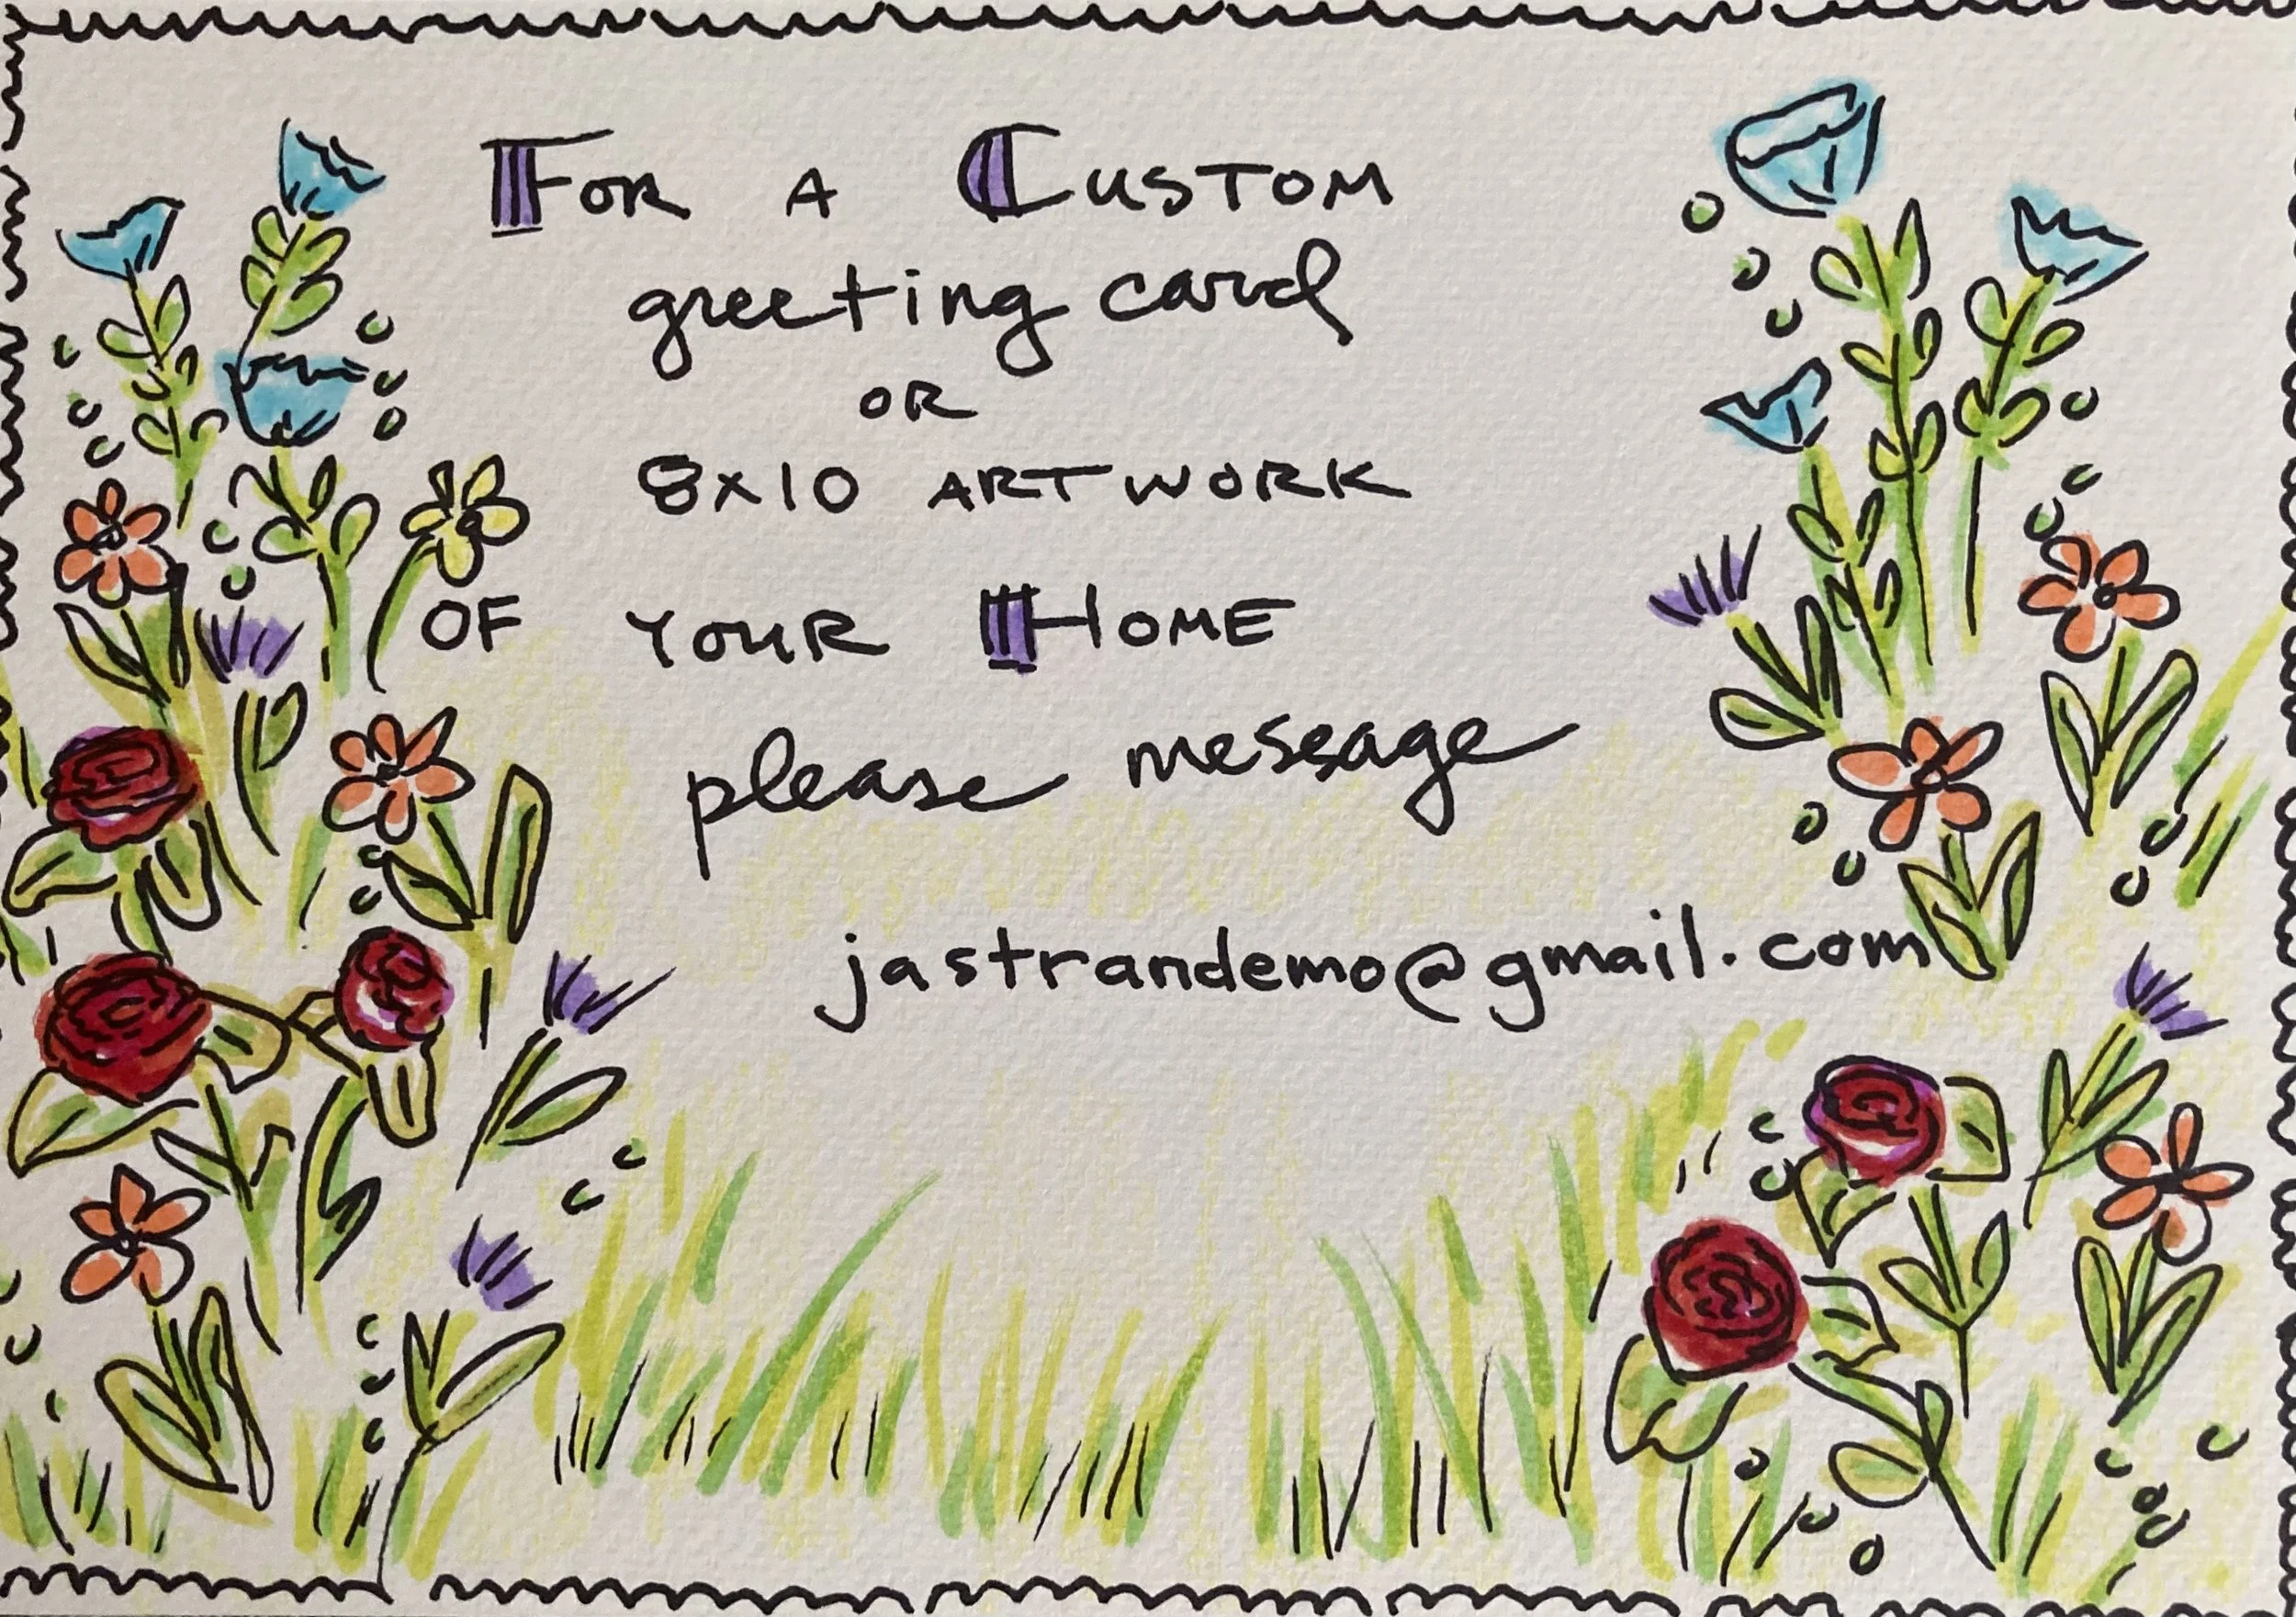 For a Custom
greeting card
or
8x10 artwork
of your Home
please message
jastrandemo@gmail.com